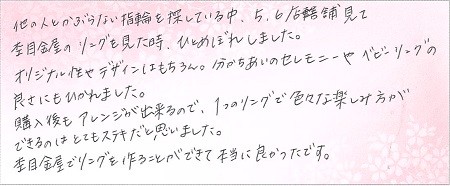 他の人とかぶらない指輪を探している中、5、6店舗舗見て
杢目金屋のリングを見た時、ひとめぼれしました。
オリジナル性やデザインはもちろん。分かちあいのセレモニーやベビーリングの
良さにもひかれました。
購入後もアレンジが出来るので、1つのリングで色々な楽しみ方が
できるのはとてもステキだと思いました。
杢目金屋でリングを作ることができて本当に良かったです。